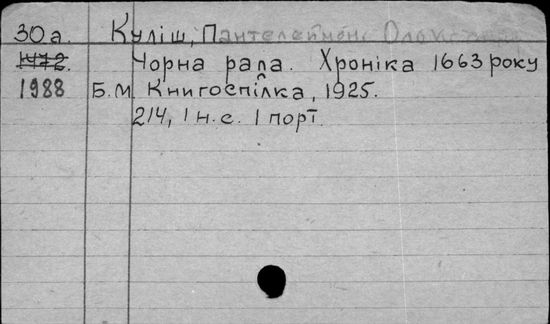 30а. Куліш, Пантелеймон Олександр
1472. Чорна рала. Хроніка 1663 року
1988 Б.М. Книгоспілка, 1925.
214, 1 н.с. 1 порт.